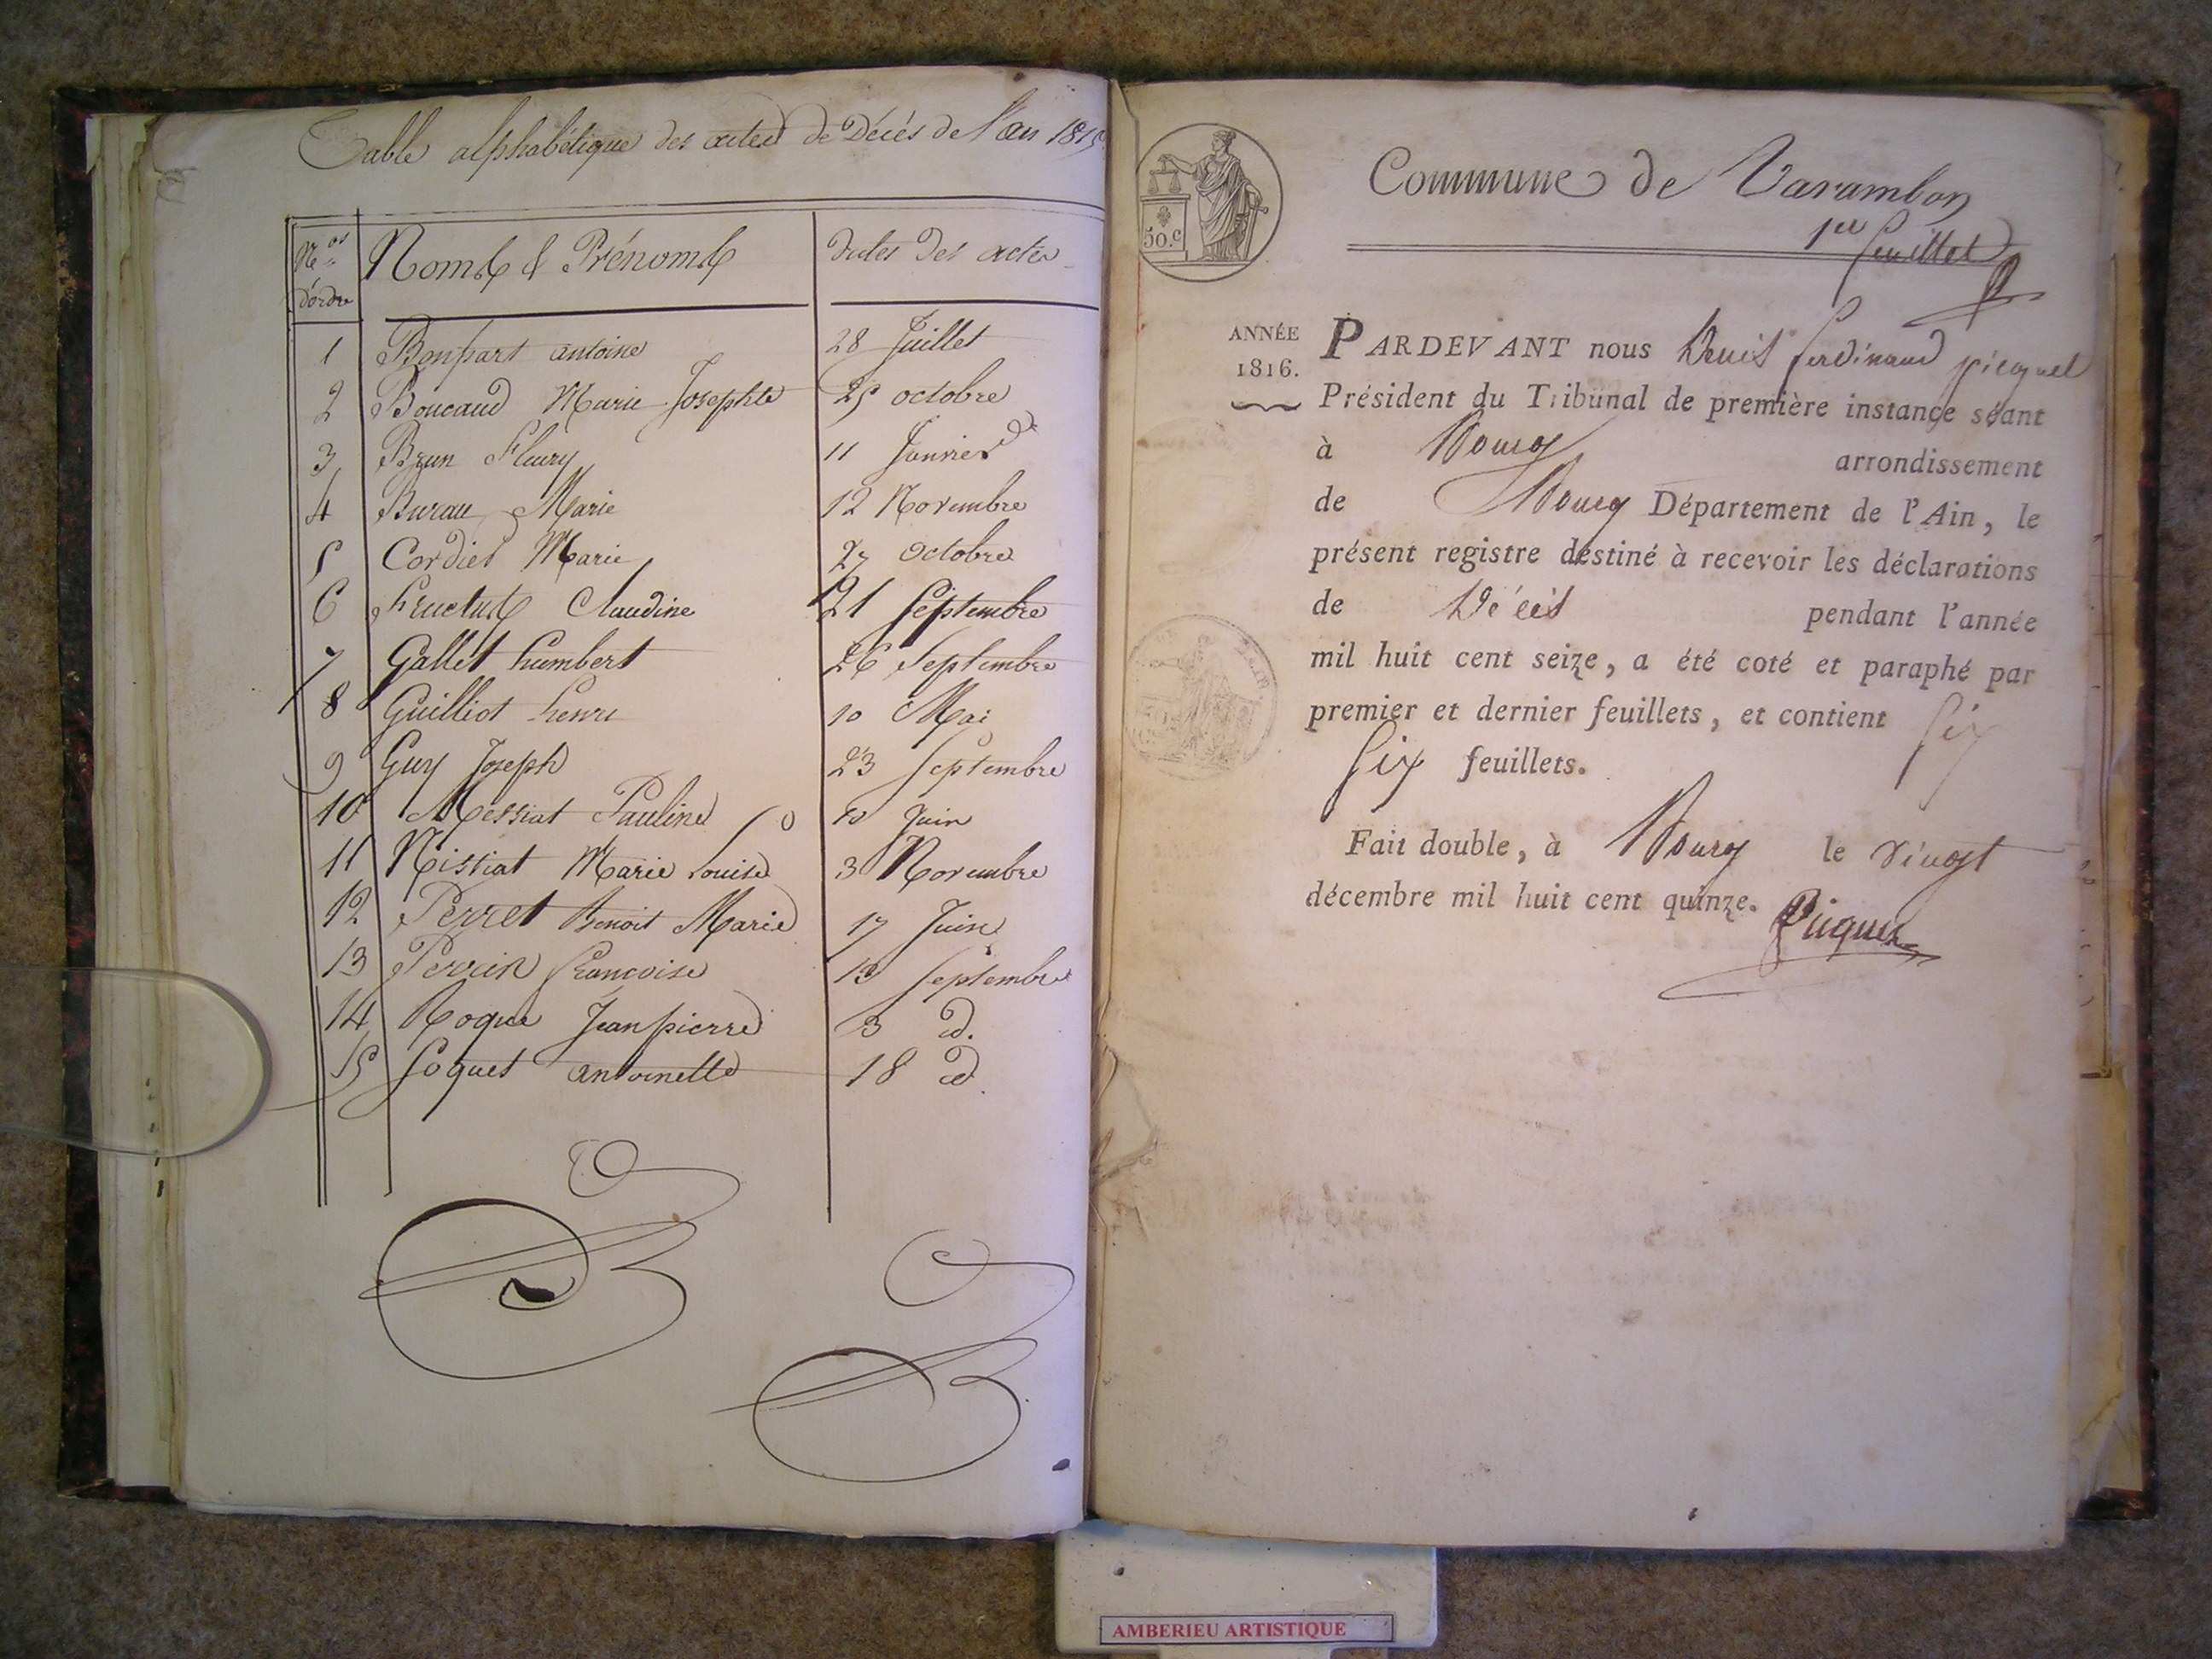 Table alphabétique des actes de Décés de l'an 1815
Nos d'ordre Noms & Prénoms dates des actes
1 Bonpart antoine 28 Juillet
2 Boucaud Marie Josephte 25 octobre
3 Brun Fleury 11 Janvier
4 Burau Marie 12 Novembre
5 Cordier Marie 27 Octobre
6 Fructus Claudine 21 Septembre
7 Gallet humbert 26 Septembre
8 Guilliot henri 10 Mai
9 Guy Joseph 23 Septembre
10 Messiat Pauline 10 Juin
11 Mistiat Marie Louise 3 Novembre
12 Perret Benoit Marie 17 Juin
13 Perrin françoise 13 Septembre
14 Roque Jean pierre 3 d.
15 Soquet antoinette 18 d.
50.c
Commune de Varambon
1er feuillet
ANNÉE
1816.
PARDEVANT nous Denis ferdinand picquet
Président du Tribunal de première instance séant
à Bourg arrondissement
de Bourg Département de l'Ain, le
présent registre destiné à recevoir les déclarations
de Décès pendant l'année
mil huit cent seize, a été coté et paraphé par
premier et dernier feuillets, et contient six
six feuillets.
Fait double, à Bourg le vingt
décembre mil huit cent quinze.
Picquet
AMBERIEU ARTISTIQUE